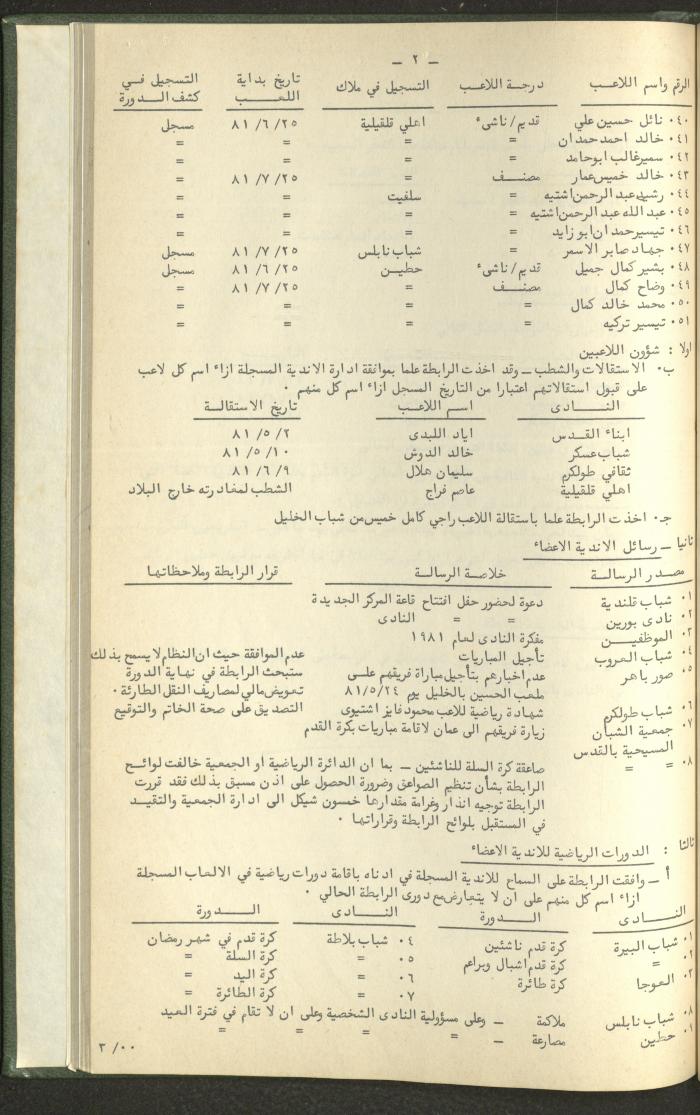 – ٢ –
الرقم واسم اللاعب درجة اللاعب التسجيل في ملاك تاريخ بداية اللعب التسجيل في كشف الدورة
٤٠. نائل حسين علي قديم/ناشىء اهلي قلقيلية ٨١/٦/٢٥ مسجل
٤١. خالد احمد حمدان = = = =
٤٢. سميرغالب ابوحامد = = = =
٤٣. خالد خميس عمار مصنف = ٨١/٧/٢٥ =
٤٤. رشيد عبد الرحمن اشتيه = سلفيت = =
٤٥. عبد الله عبد الرحمن اشتيه = = = =
٤٦. تيسير حمدان ابو زايد = = = =
٤٧. جهاد صابر الاسمر = شباب نابلس ٨١/٧/٢٥ مسجل
٤٨. بشير كمال جميل قديم/ناشىء حطين ٨١/٦/٢٥ مسجل
٤٩. وضاح كمال مصنف = ٨١/٧/٢٥ =
٥٠. محمد خالد كمال = = = =
٥١. تيسير تركيه = = = =
اولا : شؤون اللاعبين
ب. الاستقالات والشطب – وقد اخذت الرابطة علما بموافقة ادارة الاندية المسجلة ازاء اسم كل لاعب
على قبول استقالاتهم اعتبارا من التاريخ المسجل ازاء اسم كل منهم .
النادى اسم اللاعب تاريخ الاستقالة
ابناء القدس اياد اللبدى ٨١/٥/٢
شباب عسكر خالد الدوش ٨١/٥/١٠
ثقافي طولكرم سليمان هلال ٨١/٦/٩
اهلي قلقيلية عاصم فراج الشطب لمغادرته خارج البلاد
جـ. اخذت الرابطة علما باستقالة اللاعب راجي كامل خميس من شباب الخليل
ثانيا – رسائل الاندية الاعضاء
مصدر الرسالة خلاصة الرسالة قرار الرابطة وملاحظاتها
١. شباب قلندية دعوة لحضور حفل افتتاح قاعة المركز الجديدة
٢. نادى بورين = = النادى
٣. الموظفين مفكرة النادى لعام ١٩٨١
٤. شباب العروب تأجيل المباريات عدم الموافقة حيث ان النظام لا يسمح بذلك
٥. صور باهر عدم اخبارهم بتأجيل مباراة فريقهم على ستبحث الرابطة في نهاية الدورة
ملعب الحسين بالخليل يوم ٨١/٥/٢٤ تعويض مالي لمصاريف النقل الطارئة .
٦. شباب طولكرم شهادة رياضية للاعب محمود فايز اشتيوى التصديق على صحة الخاتم والتوقيع
٧. جمعية الشبان زيارة فريقهم الى عمان لاقامة مباريات بكرة القدم
المسيحية بالقدس
٨. = = صاعقة كرة السلة للناشئين – بما ان الدائرة الرياضية او الجمعية خالفت لوائح
الرابطة بشأن تنظيم الصواعق وضرورة الحصول على اذن مسبق بذلك فقد قررت
الرابطة توجيه انذار وغرامة مقدارها خمسون شيكل الى ادارة الجمعية والتقيد
في المستقبل بلوائح الرابطة وقراراتها .
ثالثا : الدورات الرياضية للاندية الاعضاء
أ – وافقت الرابطة على السماح للاندية المسجلة في ادناه باقامة دورات رياضية في الالعاب المسجلة
ازاء اسم كل منهم على ان لا يتعارض مع دورى الرابطة الحالي .
النادى الدورة النادى الدورة
١. شباب البيرة كرة قدم ناشئين ٤. شباب بلاطة كرة قدم في شهر رمضان
٢. = كرة قدم اشبال وبراعم ٥. = كرة السلة =
٣. العوجا كرة طائرة ٦. = كرة اليد =
٧. = كرة الطائرة =
٨. شباب نابلس ملاكمة – وعلى مسؤولية النادى الشخصية وعلى ان لا تقام في فترة العيد
٩. حطين مصارعة – = = = =
٣/٠٠